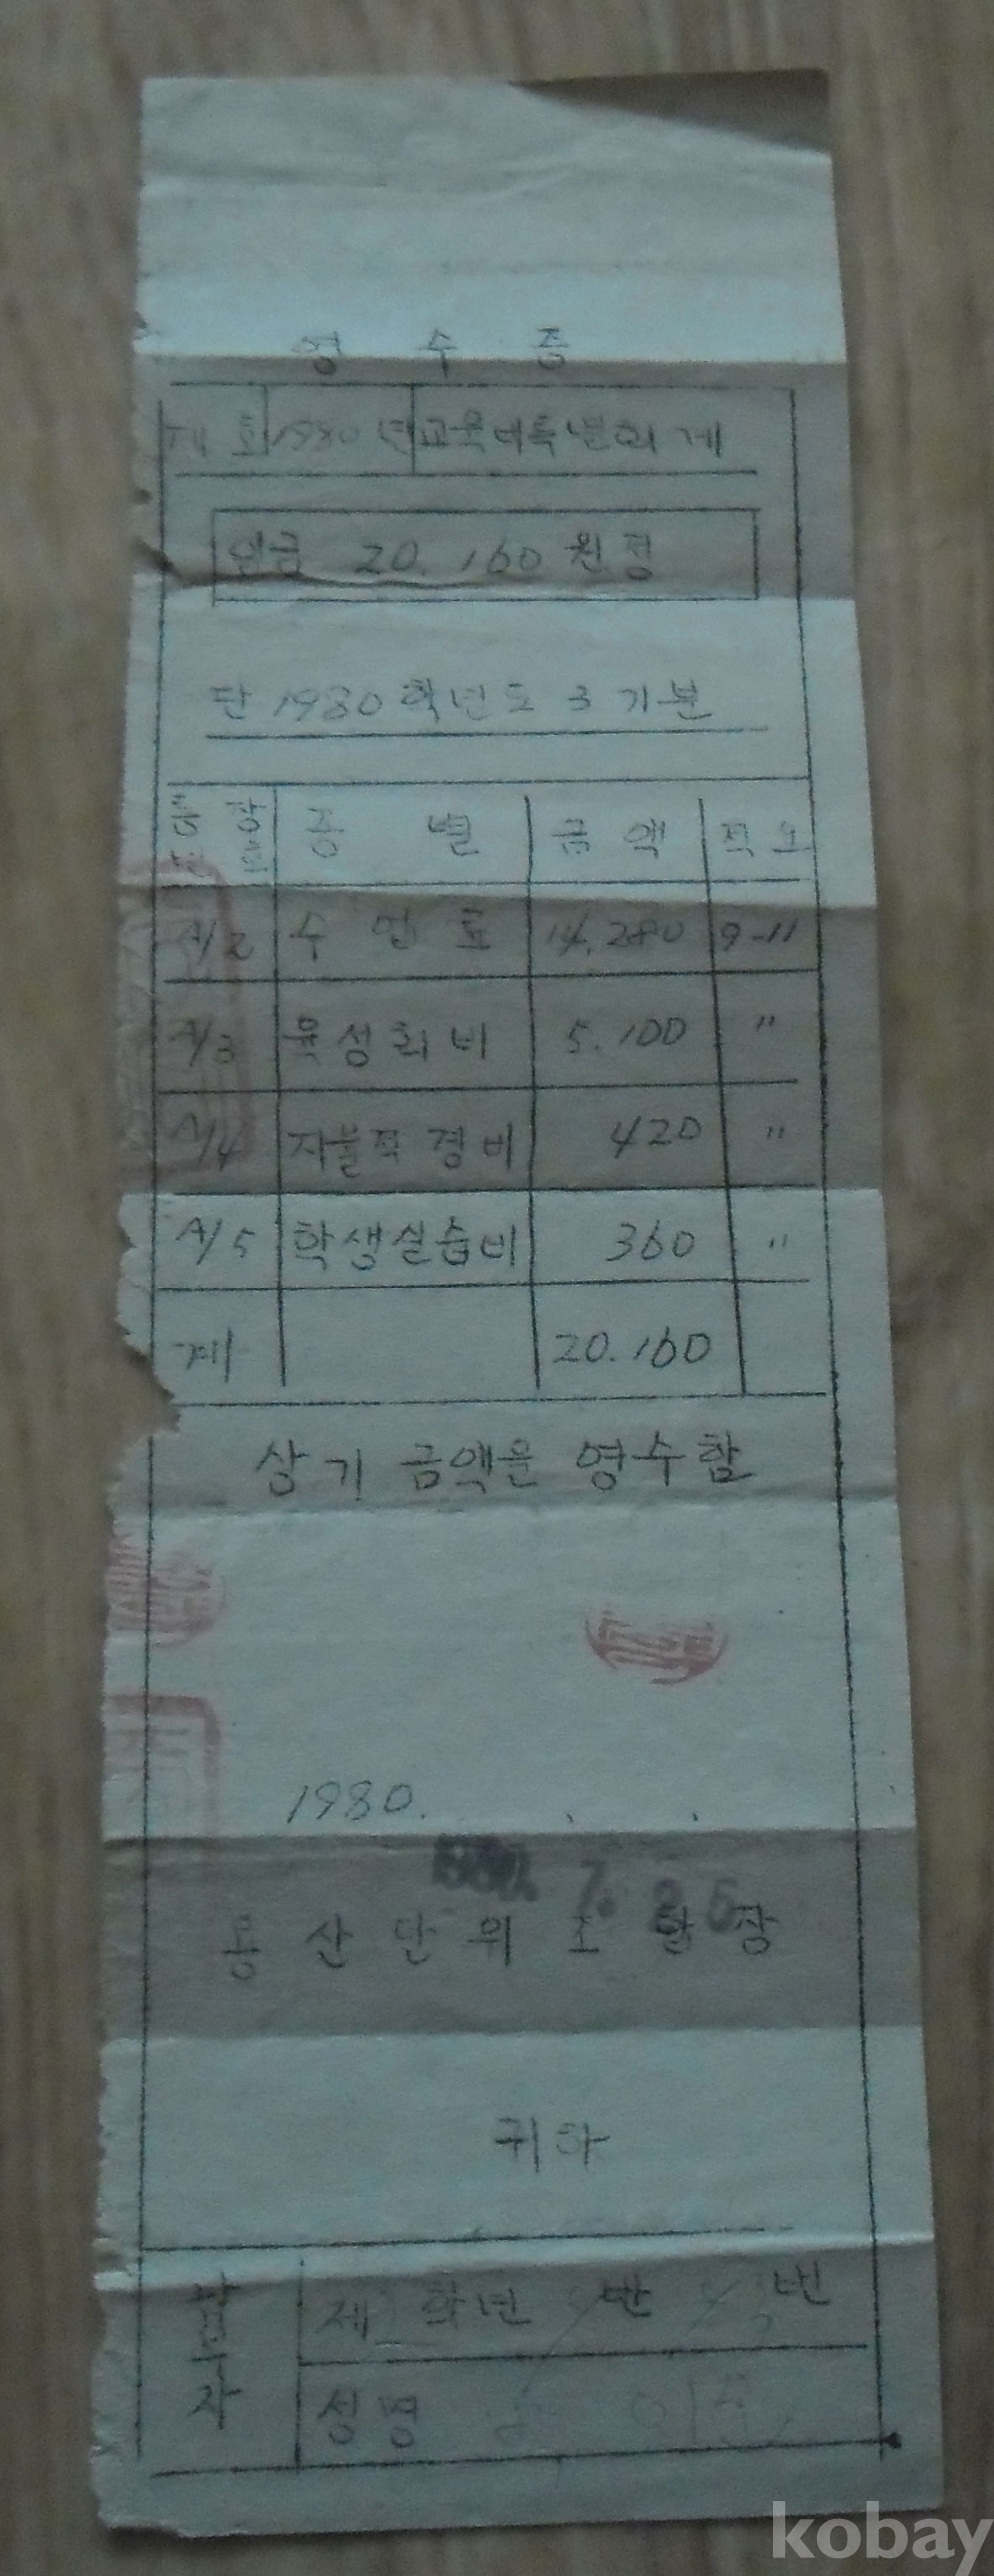 영 수 증
제 호 1980 년 교육비특별회계
일금 20.160 원정
단 1980 학년도 3 기분
통장 종 별 금 액 적 요
A/2 수 업 료 14.280 9-11
A/3 육성회비 5.100 "
A/4 자율적 경비 420 "
A/5 학생실습비 360 "
계 20.160
상기 금액을 영수함
1980. . .
1980. 7. 25
용 산 단 위 조 합 장
귀하
납부자 제 학년 반 번
성명
kobay